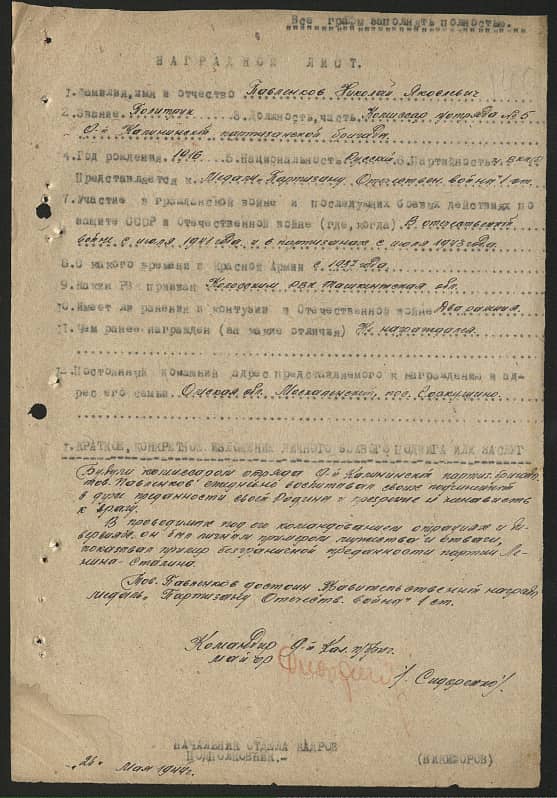 Все графы заполнять полностью.
НАГРАДНОЙ ЛИСТ.
1. Фамилия, имя и отчество Павленков Николай Яковлевич
2. Звание. Политрук 3. Должность, часть. Комиссар отряда № 5
9-й Калининск. партизанской бригады.
4. Год рождения. 1916 5. Национальность Русский 6. Партийность
Представляется к. Медали "Партизану Отечествен. войны" 1 ст.
7. Участие в гражданской войне и последующих боевых действиях по
защите СССР и Отечественной войне (где, когда) В отечествен.
войне с июля 1941 года и в партизанах с июля 1943 года.
8. С какого времени в Красной Армии с 1937 года.
9. Каким РВК призван РВК Ташкентская обл.
10. Имеет ли ранения и контузии в Отечественной войне Два ранения.
11. Чем ранее награжден (за какие отличия) Не награждался.
Постоянный домашний адрес представляемого к награждению и ад-
рес его семьи. Омская обл. Москаленский, пос.
1. КРАТКОЕ, КОНКРЕТНОЕ ИЗЛОЖЕНИЕ ЛИЧНОГО БОЕВОГО ПОДВИГА ИЛИ ЗАСЛУГ
Будучи комиссаром отряда 9-й Калининск. партиз. бригады
тов. Павленков ежедневно воспитывал своих подчиненных
в духе преданности своей Родине и презрение и ненависть
к врагу.
В проводимых под его командованием операциях и
он был личным примером мужества и отваги,
показывал пример безграничной преданности партии Ле-
нина-Сталина.
Тов. Павленков достоин Правительственной награды
медаль "Партизану Отечеств. войны" 1 ст.
Командир 9-й Кал. п/бриг.
майор
/. Сидоренко/.
НАЧАЛЬНИК ОТДЕЛА КАДРОВ
ПОДПОЛКОВНИК.-
(НИКИФОРОВ)
"26" Мая 1944г.